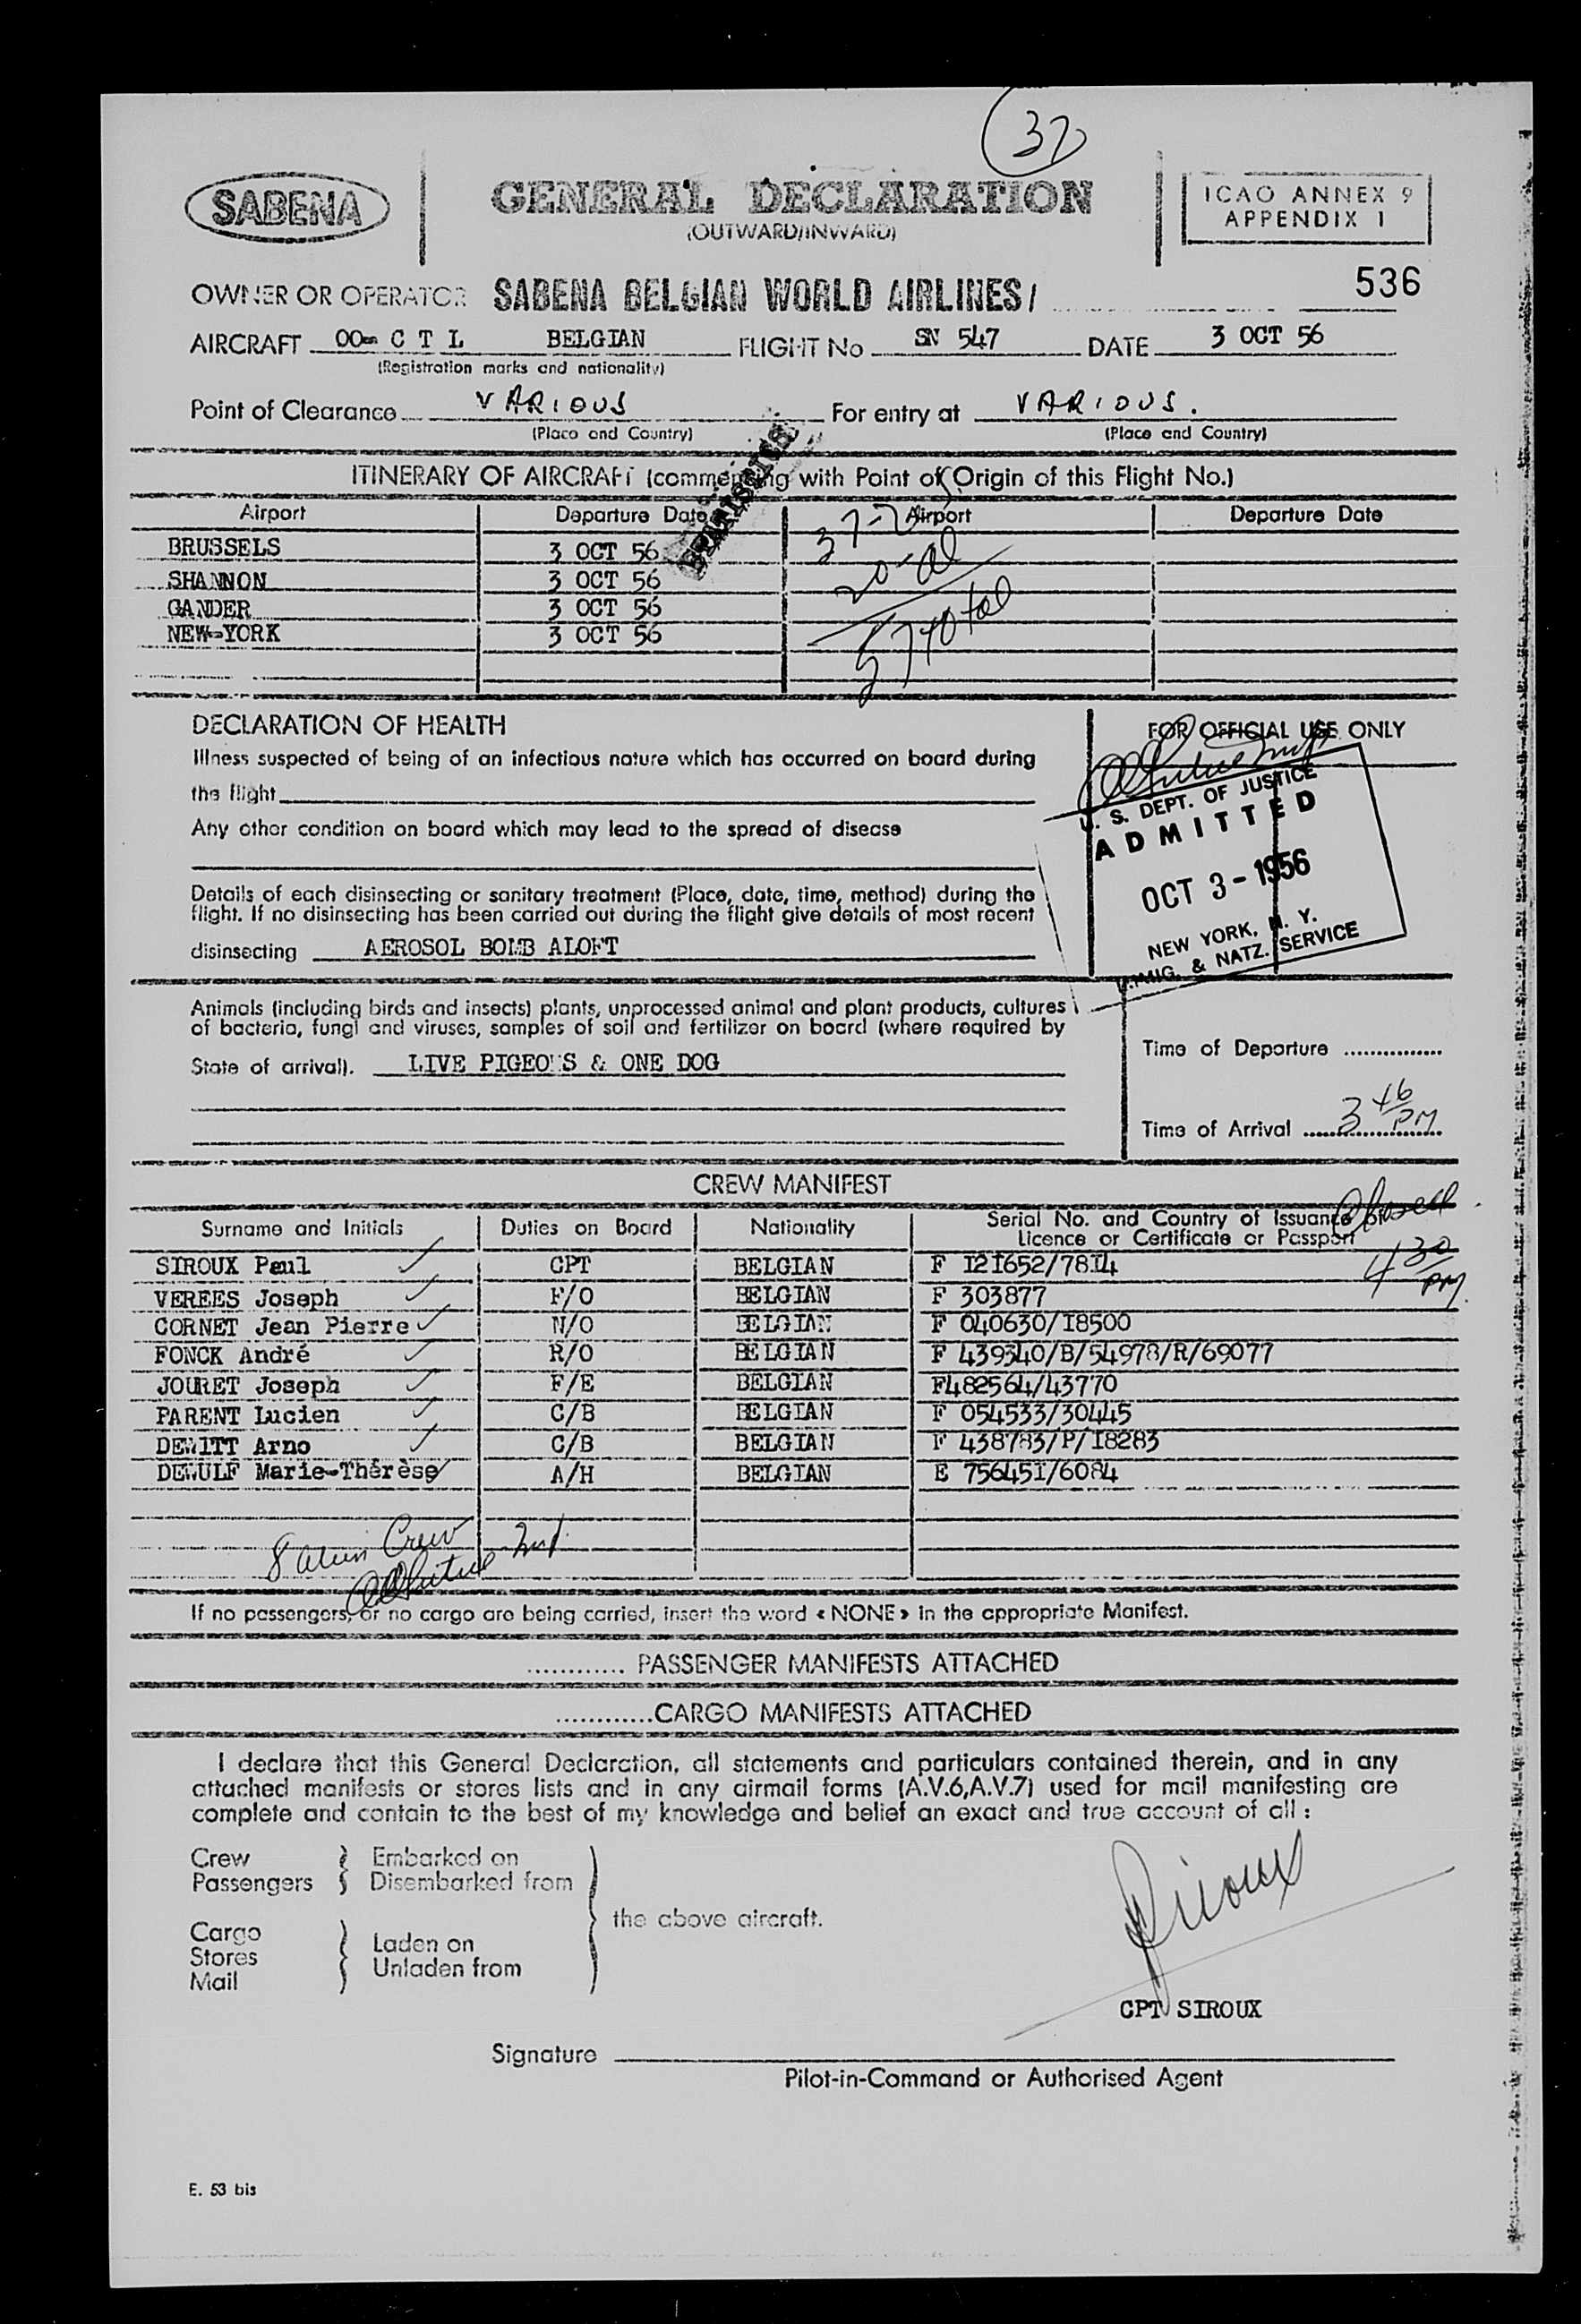 37
SABENA
GENERAL DECLARATION
(OUTWARD/INWARD)
ICAO ANNEX 9
APPENDIX 1
536
OWNER OR OPERATOR SABENA BELGIAN WORLD AIRLINES/
AIRCRAFT OO-CTL BELGIAN FLIGHT No SN 547 DATE 3 OCT 56
(Registration marks and nationality)
Point of Clearance VARIOUS For entry at VARIOUS.
(Place and Country) (Place and Country)
STATISTICS
ITINERARY OF AIRCRAFT (commencing with Point of Origin of this Flight No.)
Airport Departure Date Airport Departure Date
BRUSSELS 3 OCT 56
SHANNON 3 OCT 56
GANDER 3 OCT 56
NEW-YORK 3 OCT 56
20-al
57 total
DECLARATION OF HEALTH
Illness suspected of being of an infectious nature which has occurred on board during
the flight
Any other condition on board which may lead to the spread of disease
Details of each disinsecting or sanitary treatment (Place, date, time, method) during the
flight. If no disinsecting has been carried out during the flight give details of most recent
disinsecting AEROSOL BOMB ALOFT
FOR OFFICIAL USE ONLY
U. S. DEPT. OF JUSTICE
ADMITTED
OCT 3 - 1956
NEW YORK, N. Y.
IMMIG. & NATZ. SERVICE
Animals (including birds and insects) plants, unprocessed animal and plant products, cultures
of bacteria, fungi and viruses, samples of soil and fertilizer on board (where required by
State of arrival). LIVE PIGEONS & ONE DOG
Time of Departure ...............
Time of Arrival 3 46 PM
CREW MANIFEST
Surname and Initials Duties on Board Nationality Serial No. and Country of Issuance of
Licence or Certificate or Passport
4 30 PM.
SIROUX Paul CPT BELGIAN F I2I652/78I4
VEREES Joseph F/O BELGIAN F 303877
CORNET Jean Pierre N/O BELGIAN F 040630/I8500
FONCK André R/O BELGIAN F 439340/B/54978/R/69077
JOURET Joseph F/E BELGIAN F482564/43770
PARENT Lucien C/B BELGIAN F 054533/30445
DEWITT Arno C/B BELGIAN F 438783/P/I8283
DEWULF Marie-Thérèse A/H BELGIAN E 75645I/6084
8 alien Crew
If no passengers, or no cargo are being carried, insert the word « NONE » in the appropriate Manifest.
............. PASSENGER MANIFESTS ATTACHED
.............CARGO MANIFESTS ATTACHED
I declare that this General Declaration, all statements and particulars contained therein, and in any
attached manifests or stores lists and in any airmail forms (A.V.6,A.V.7) used for mail manifesting are
complete and contain to the best of my knowledge and belief an exact and true account of all :
Crew Embarked on
Passengers Disembarked from
the above aircraft.
Cargo
Stores Laden on
Mail Unladen from
Siroux
CPT SIROUX
Signature
Pilot-in-Command or Authorised Agent
E. 53 bis